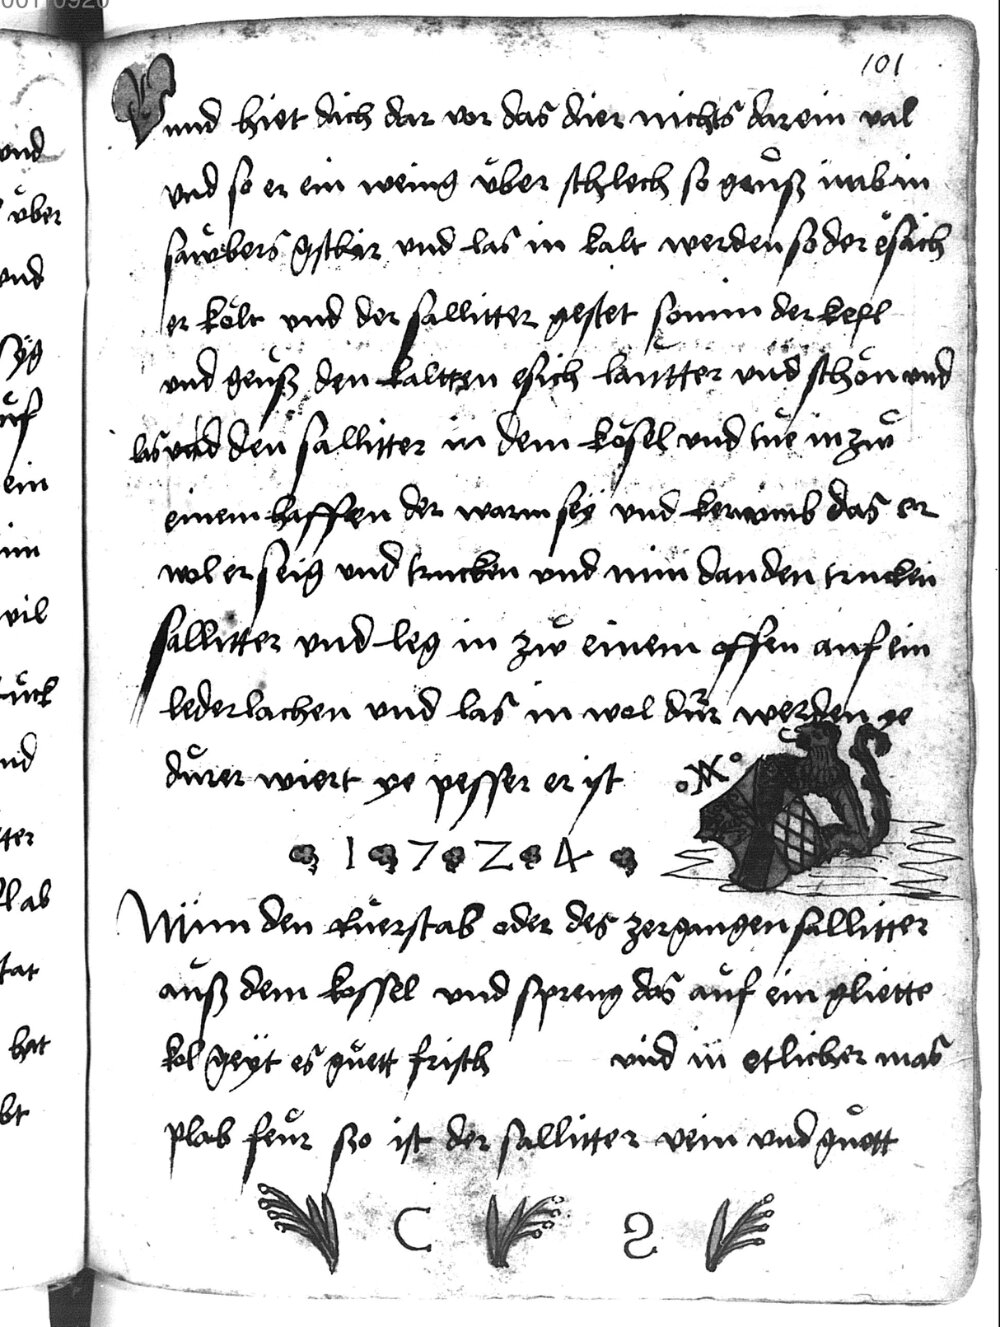 101
und hiet dich dar vor das dier nichts darein val
und so er ein wenig über schlech so geüß in ab in
saübers gschir und las in kalt werden so der esich
er költ und der sallitter gestet so nim der kesl
und geüß den kaltten esich lautter und schön und
las den sallitter in dem kösel und tüe in zw
einem haffen der warm sey und ker umb das er
wol er seig und trucken und nim dan den trucken
sallitter und leg in zw einem offen auf ein
leder lachen und las in wol dür werden ye
dürer wiert ye pesser er ist
1 7 2 4
Nim den oder des zergangen sallitter
auß dem kossel und spreng das auf ein gliette
kol geyt es guett frisch und in etlicher mas
plab feür so ist der sallitter rein und guett
C S
und
über
und
ein
vil
ück
tter
ab
tat
hat